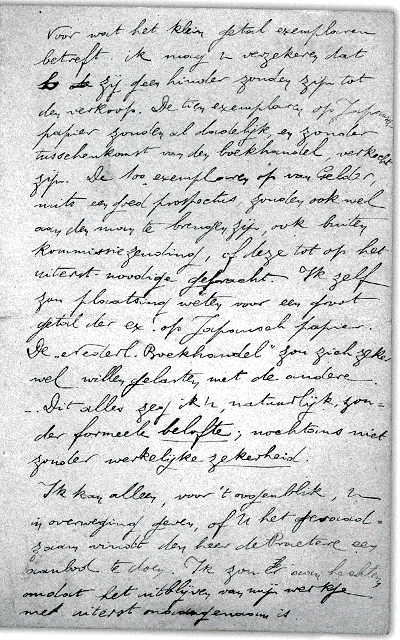 Voor wat het klein getal exemplaren
betreft ik mag u verzekeren dat
zij geen hinder zouden zijn tot
den verkoop. De tien exemplaren op Japansch
papier zouden al dadelijk, en zonder
tusschenkomst van den boekhandel, verkocht
zijn. De 100 exemplaren op van Gelder,
mits een goed prospectus, zouden ook wel
aan den man te brengen zijn, ook buiten
kommissiezending, of deze tot op het
uiterst noodige gebracht. Ik zelf
zou plaatsing weten voor een groot
getal der ex. op Japansch papier.
De „Nederl. Boekhandel" zou zich zeker
wel willen gelasten met de andere.
– Dit alles zeg ik u, natuurlijk, zon-
der formeele belofte; nochtans niet
zonder werkelijke zekerheid.
Ik kan alleen, voor 't oogenblik, U
in overweging geven, of U het geraad-
zaam vindt den heer de Praetere een
aanbod te doen. Ik zou er aan hechten,
omdat het uitblijven van mijn werkje
met uiterst onaangenaam is